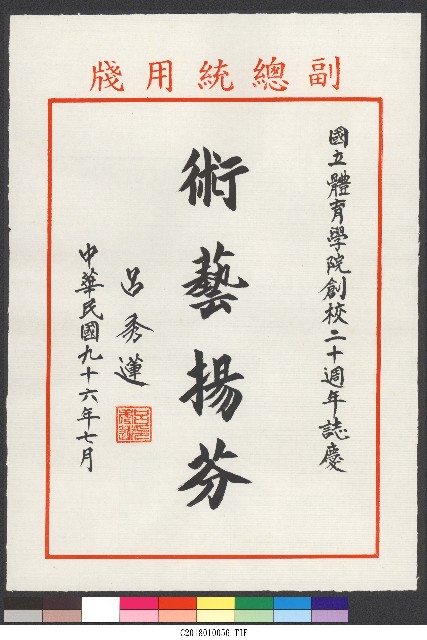 副總統用牋
國立體育學院創校二十週年誌慶
術藝揚芬
呂秀蓮
中華民國九十六年七月
C2018010056.TIF